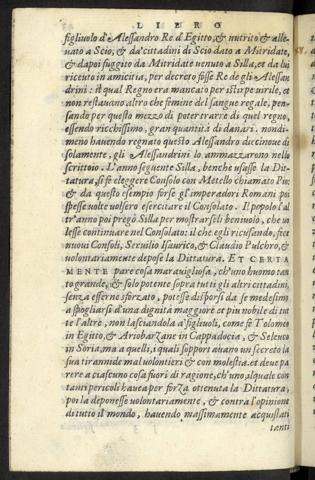 LIBRO
figliuolo d'Alessandro Re d'Egitto, & nutrito & alle-
uato a Scio, & da' cittadini di Scio dato a Mitridate,
& dapoi fuggito da Mitridate venuto a Silla, et da lui
riceuto in amicitia, per decreto fosse Re de gli Alessan-
drini: il qual Regno era mancato per istirpe uirile, et
non restauano altro che femine del sangue regale, pen-
sando per questo mezzo di poter trarre di quel regno,
essendo ricchissimo, gran quantità di danari. nondi-
meno hauendo regnato questo Alessandro diecinoue dì
solamente, gli Alessandrini lo ammazzarono nello
scrittoio. L'anno seguente Silla, benche usasse la Dit-
tatura, si fe eleggere Consolo con Metello chiamato Pie,
& da questo esempio forse gl'imperadori Romani poi
spesse volte volsero esercitare il Consolato. Il popolo l'al
tr'anno poi pregò Silla per mostrarseli beniuolo, che uo
lesse continuare nel Consolato: il che egli ricusando, fece
nuoui Consoli, Seruilio Isaurico, & Claudio Pulchro, &
volontariamente depose la Dittatura. ET CERTA
MENTE pare cosa marauigliosa, ch'uno huomo tan
to grande, & solo potente sopra tutti gli altri cittadini,
senza esserne sforzato, potesse disporsi da se medesimo
a spogliarsi d'una dignità maggiore et piu nobile di tut
te l'altre, non lasciandola a' figliuoli, come fe Tolomeo
in Egitto, & Ariobarzane in Cappadocia, & Seleuco
in Soria, ma a quelli, i quali sopportauano un secreto la
sua tirannide mal volontieri & con molestia. et deue pa
rere a ciascuno cosa fuori di ragione, ch'uno, il quale con
tanti pericoli hauea per forza ottenuta la Dittatura,
poi la deponesse volontariamente, & contra l'opinione
di tutto il mondo, hauendo massimamente acquistati
tanti